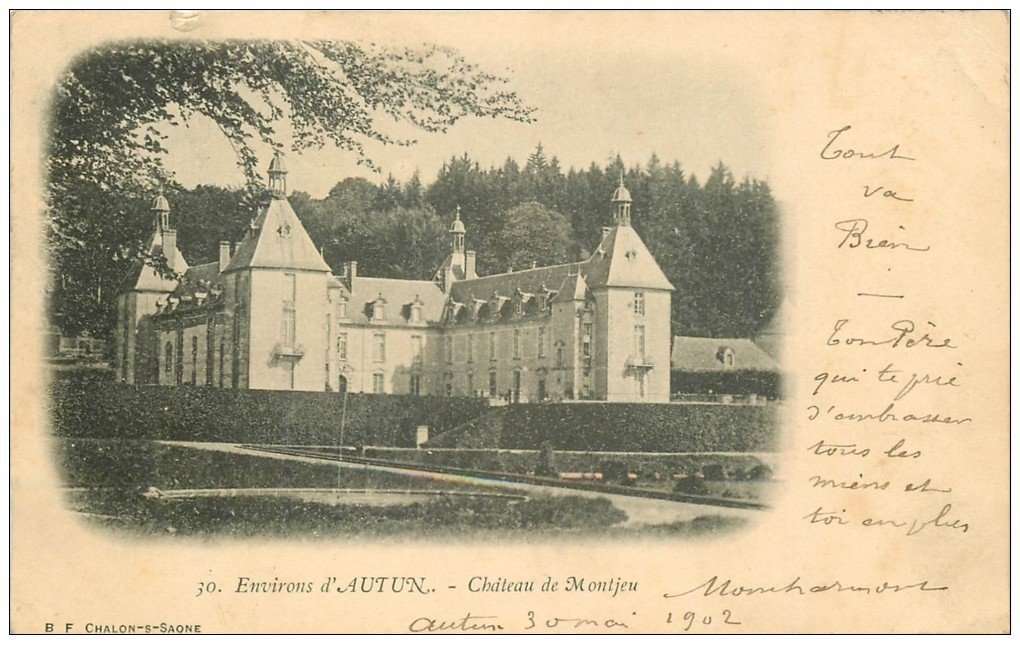 Tout
va
Bien
—
Ton Père
qui te prie
d'embrasser
tous les
miens et
toi en plus
30. Environs d'AUTUN. - Château de Montjeu
Autun 30 mai 1902
B F CHALON-S-SAONE